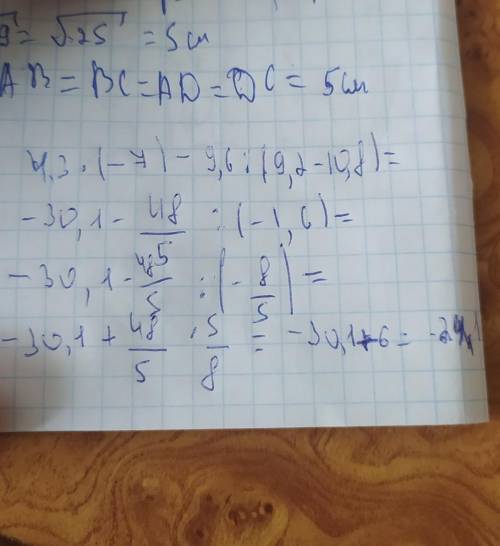 9 = √25 = 5 см
AB = BC = AD = DC = 5 см
4,3 · (-7) - 9,6 : (9,2 - 10,8) =
-30,1 - 48/5 : (-1,6) =
-30,1 - 48/5 : (-8/5) =
-30,1 + 48/5 · 5/8 = -30,1 + 6 = -24,1